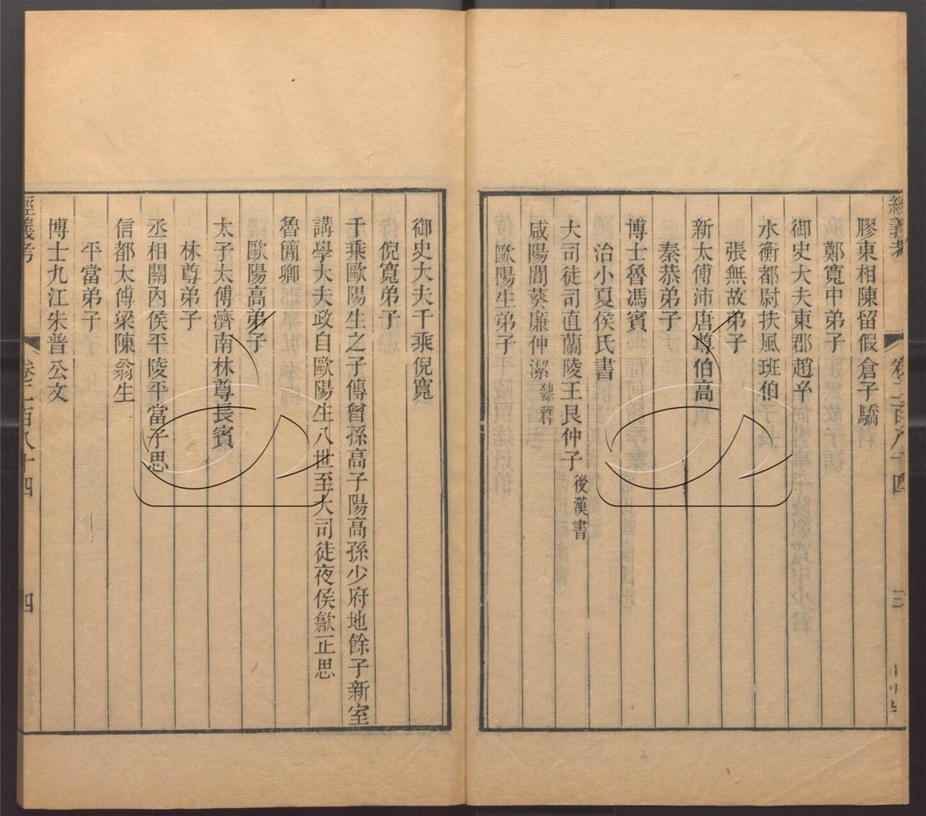 經義考 卷二百八十四 三
膠東相陳留假倉子驕
鄭寬中弟子
御史大夫東郡趙
水衡都尉扶風班伯
張無故弟子
新太傅沛唐尊伯高
秦恭弟子
博士魯馮賓
治小夏侯氏書
大司徒司直蘭陵王良仲子後漢書
咸陽閒葵廉仲潔
歐陽生弟子
御史大夫千乘倪寬
倪寬弟子
千乘歐陽生之子傳曾孫高子陽高孫少府地餘子新室
講學大夫政自歐陽生八世至大司徒夜侯歙正思
魯簡卿
歐陽高弟子
太子太傅濟南林尊長賓
林尊弟子
丞相關內侯平陵平當子思
信都太傅梁陳翁生
平當弟子
博士九江朱普公文
經義考 卷二百八十四 四